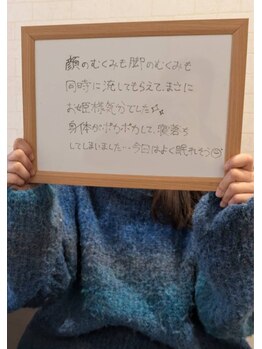 顔のむくみも脚のむくみも
同時に流してもらえて、まさに
お姫様気分でした
身体がポカポカして、寝落ち
してしまいました…今日はよく眠れそう